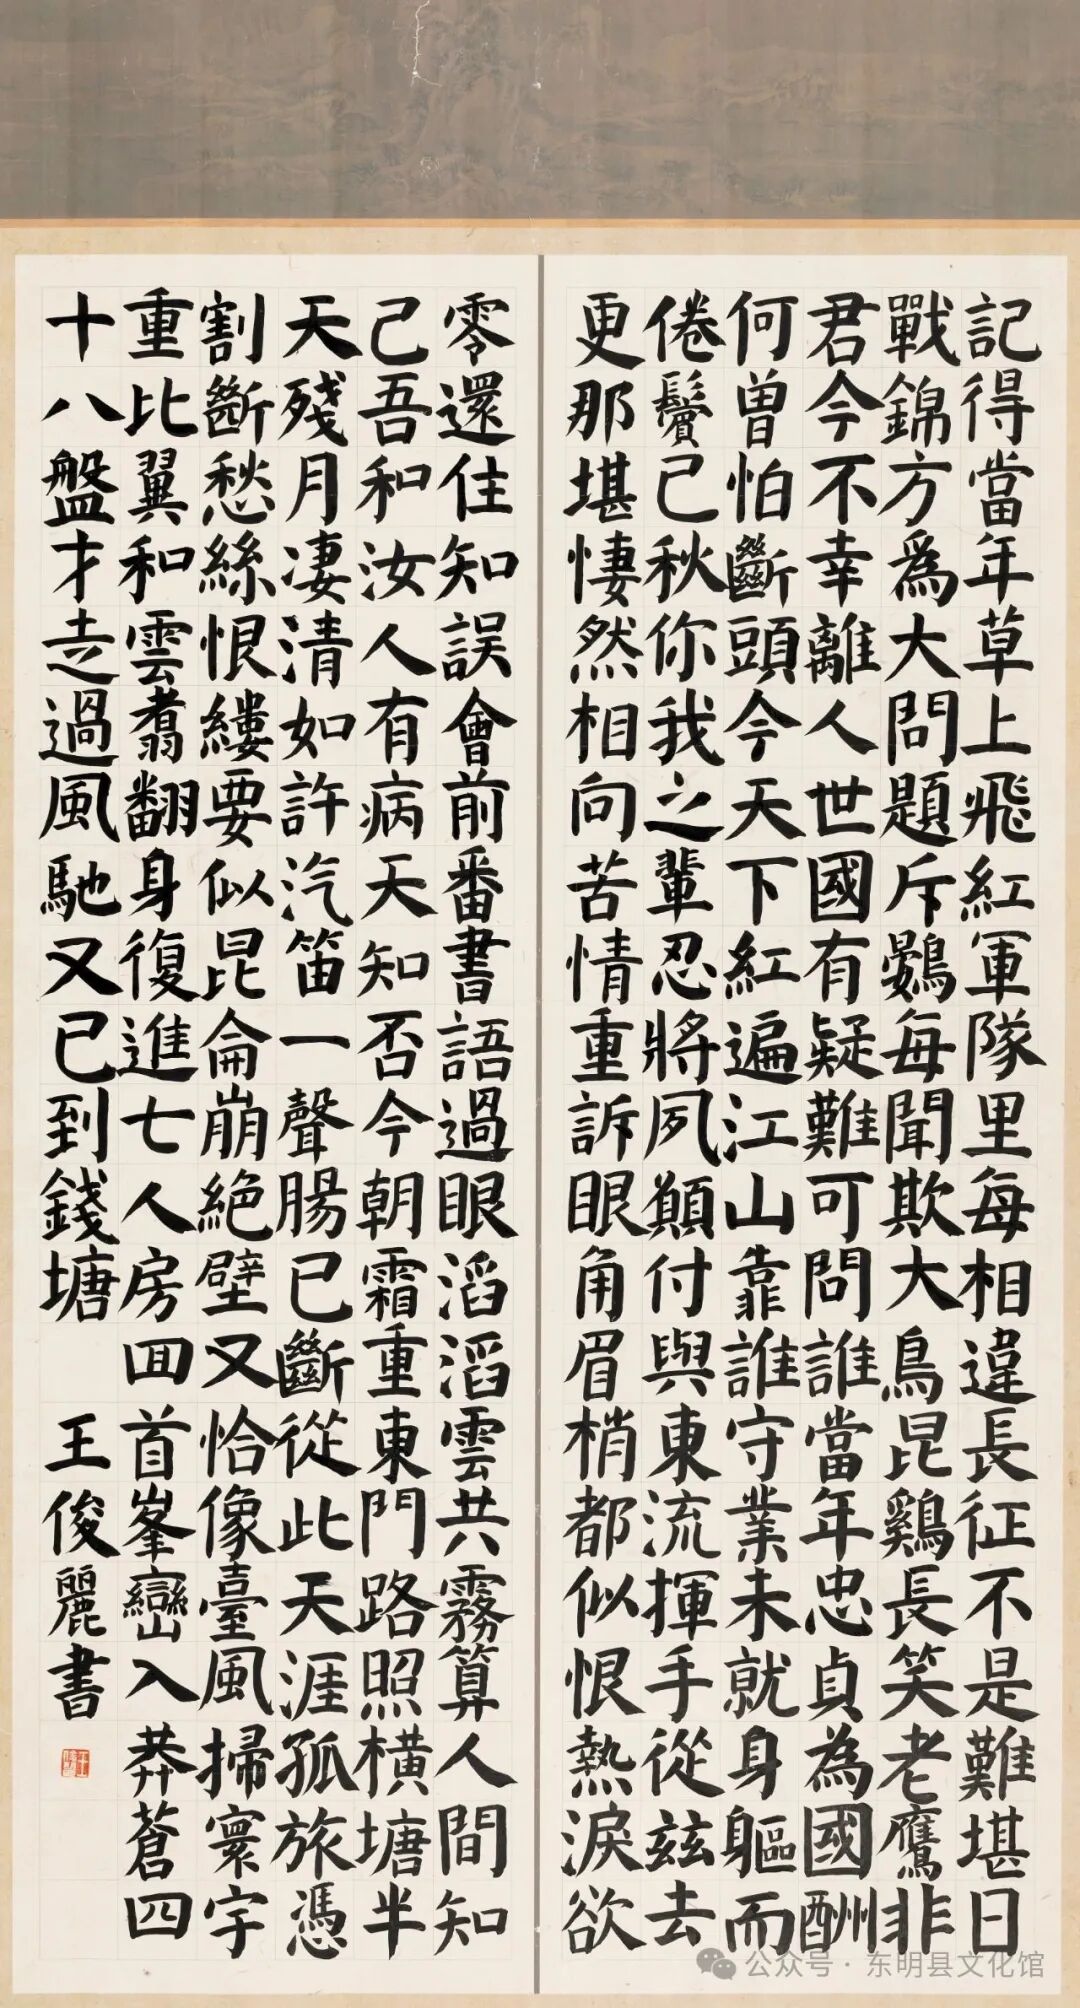 記得當年草上飛紅軍隊里每相違長征不是難堪日
戰錦方為大問題斥鷃每聞欺大鳥昆鷄長笑老鷹非
君今不幸離人世國有疑難可問誰當年忠貞為國酬
何曾怕斷頭今天下紅遍江山靠誰守業未就身軀而
倦鬢已秋你我之輩忍將夙願付與東流揮手從茲去
更那堪悽然相向苦情重訴眼角眉梢都似恨熱淚欲
零還住知誤會前番書語過眼滔滔雲共霧算人間知
己吾和汝人有病天知否今朝霜重東門路照橫塘半
天殘月凄清如許汽笛一聲腸已斷從此天涯孤旅憑
割斷愁絲恨縷要似昆侖崩絕壁又恰像臺風掃寰宇
重比翼和雲翥翻身復進七人房回首峯巒入莽蒼四
十八盤才走過風馳又已到錢塘 王俊麗書
公众号·东明县文化馆